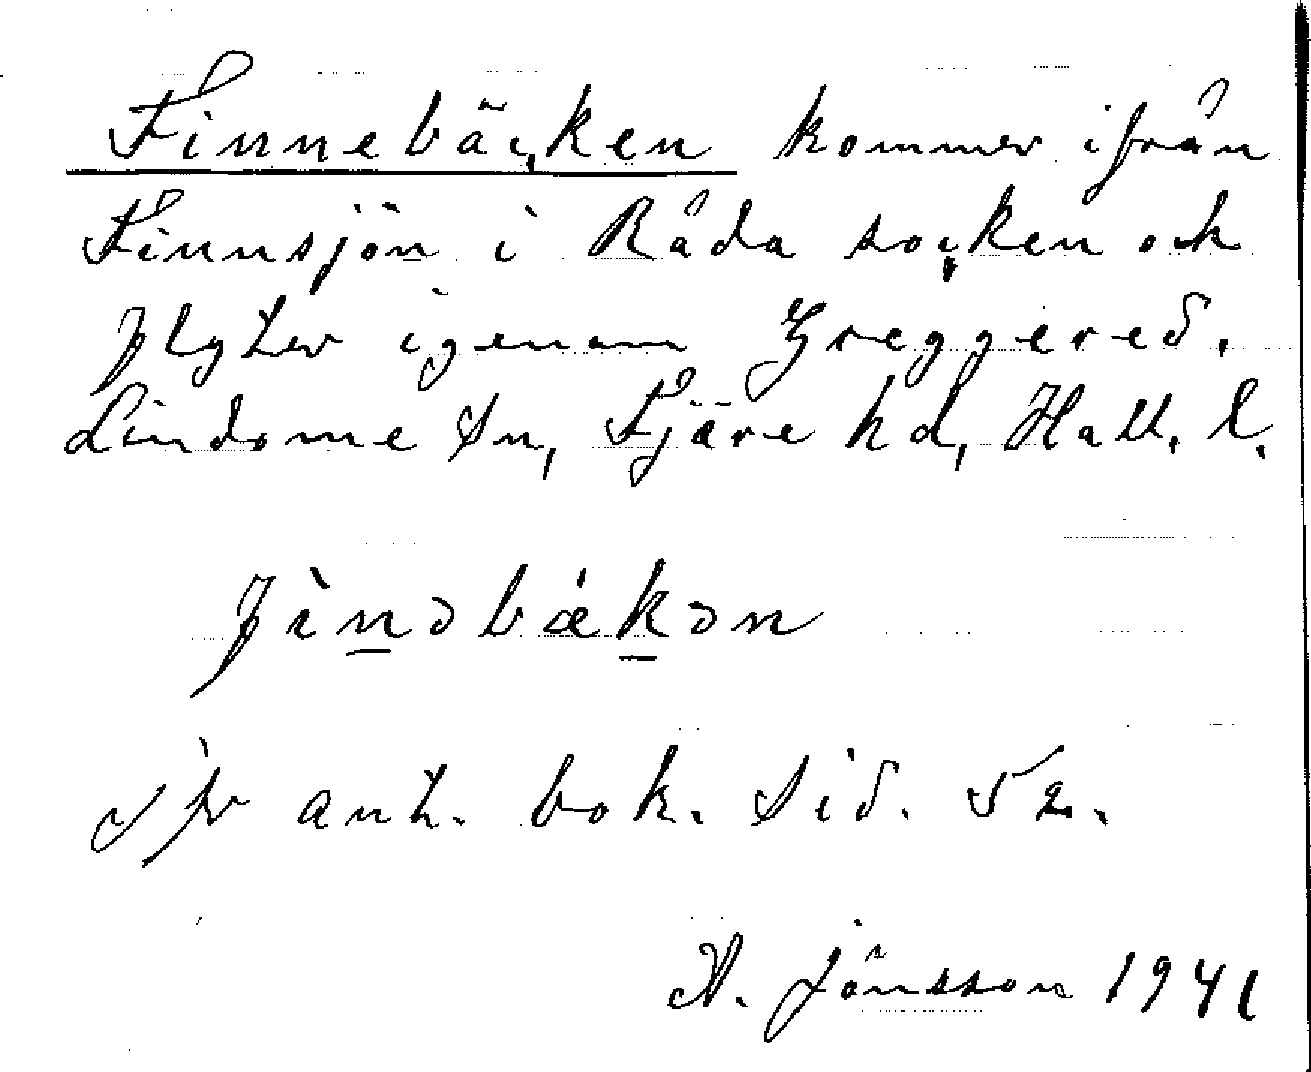 Finnebäcken kommer ifrån
Finnsjön i Råda socken och
flyter igenom Greggered.
Lindome sn, Fjäre hd, Hall. l.
fìnəbækən
ant. bok. sid. 52.
A. Jönsson 1941